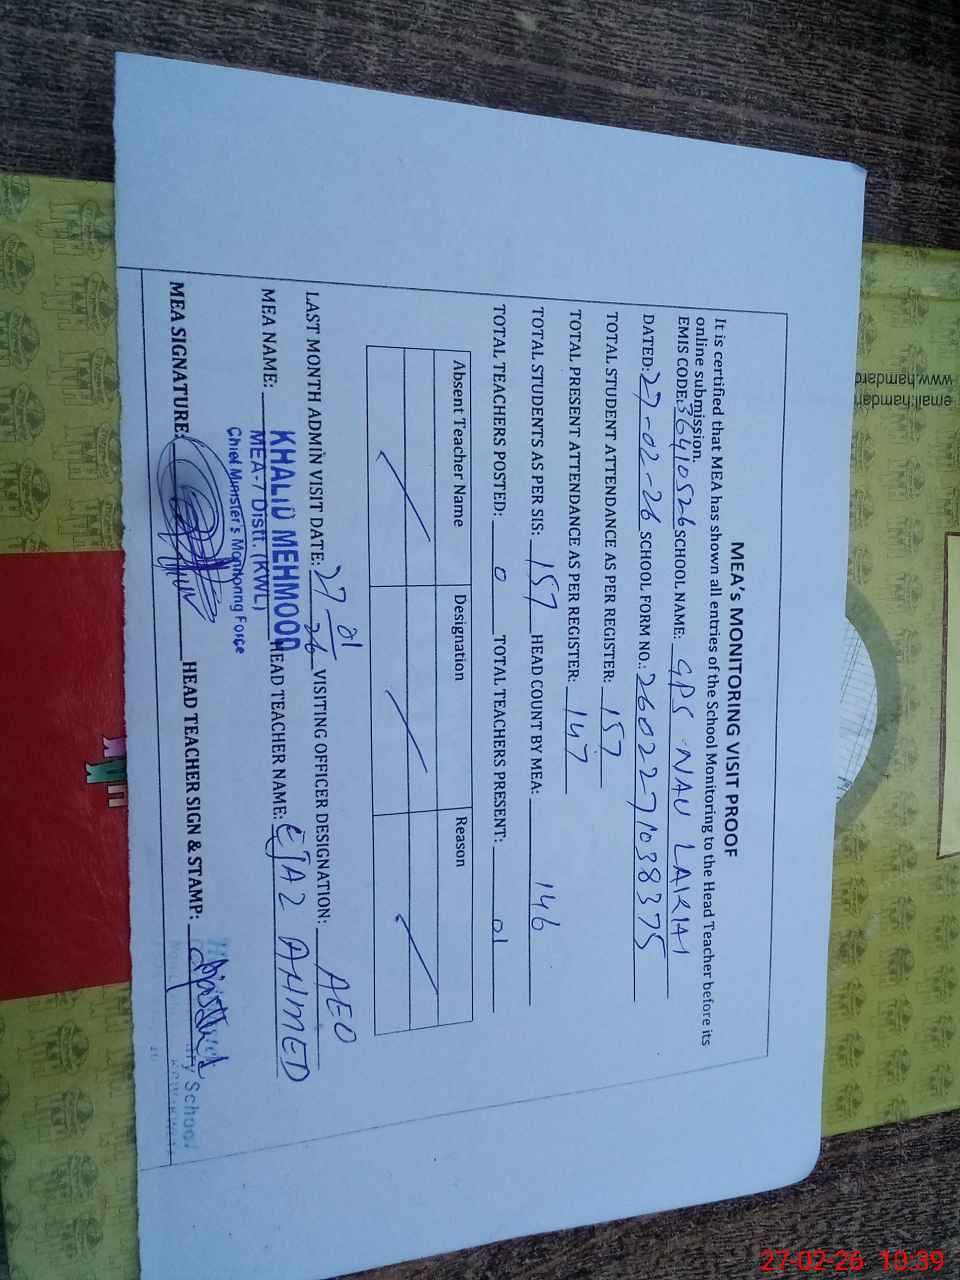 MEA's MONITORING VISIT PROOF
It is certified that MEA has shown all entries of the School Monitoring to the Head Teacher before its
online submission.
EMIS CODE: 36410526 SCHOOL NAME: GPS NAU LAKHAI
DATED: 27-02-26 SCHOOL FORM NO.: 2602271038375
TOTAL STUDENT ATTENDANCE AS PER REGISTER: 157
TOTAL PRESENT ATTENDANCE AS PER REGISTER: 147
TOTAL STUDENTS AS PER SIS: 157 HEAD COUNT BY MEA: 146
TOTAL TEACHERS POSTED: 0 TOTAL TEACHERS PRESENT: 01
Absent Teacher Name Designation Reason
LAST MONTH ADMIN VISIT DATE: 27-01-26 VISITING OFFICER DESIGNATION: AEO
MEA NAME: KHALID MEHMOOD HEAD TEACHER NAME: EJAZ AHMED
MEA-7 Distt. (KWL)
Chief Minister's Monitoring Force
MEA SIGNATURE: HEAD TEACHER SIGN & STAMP:
School
www.hamdard
email:hamdar
27-02-26 10:39